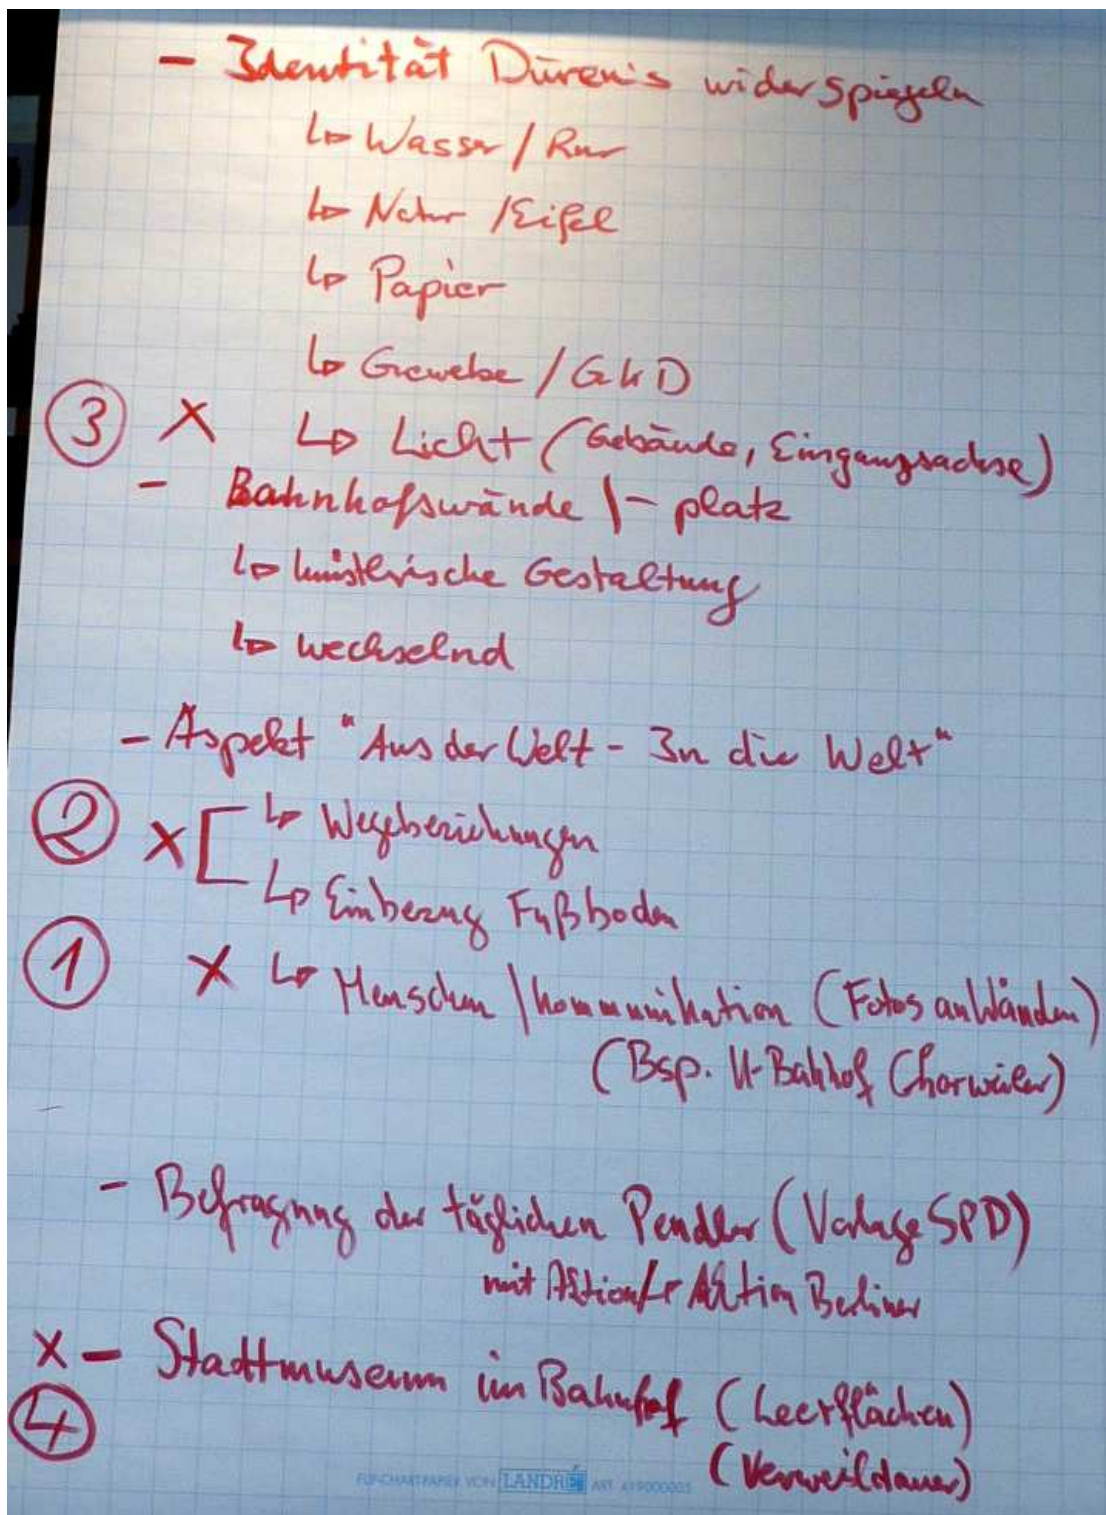 - Identität Düren's widerspiegeln
↳ Wasser / Rur
↳ Natur / Eifel
↳ Papier
↳ Gewebe / GKD
③ X ↳ Licht (Gebäude, Eingangsachse)
- Bahnhofswände / - platz
↳ künstlerische Gestaltung
↳ wechselnd
- Aspekt "Aus der Welt - In die Welt"
② X [ ↳ Wegebeziehungen
↳ Einbezug Fußboden
① X ↳ Menschen / Kommunikation (Fotos an Wänden)
(Bsp. U-Bahhof Chorweiler)
- Befragung der täglichen Pendler (Vorlage SPD)
mit Aktion Berliner
X - Stadtmuseum im Bahnhof (Leerflächen)
④ (Verweildauer)
FLIPCHARTPAPIER VON LANDRÉ ART. 419000005